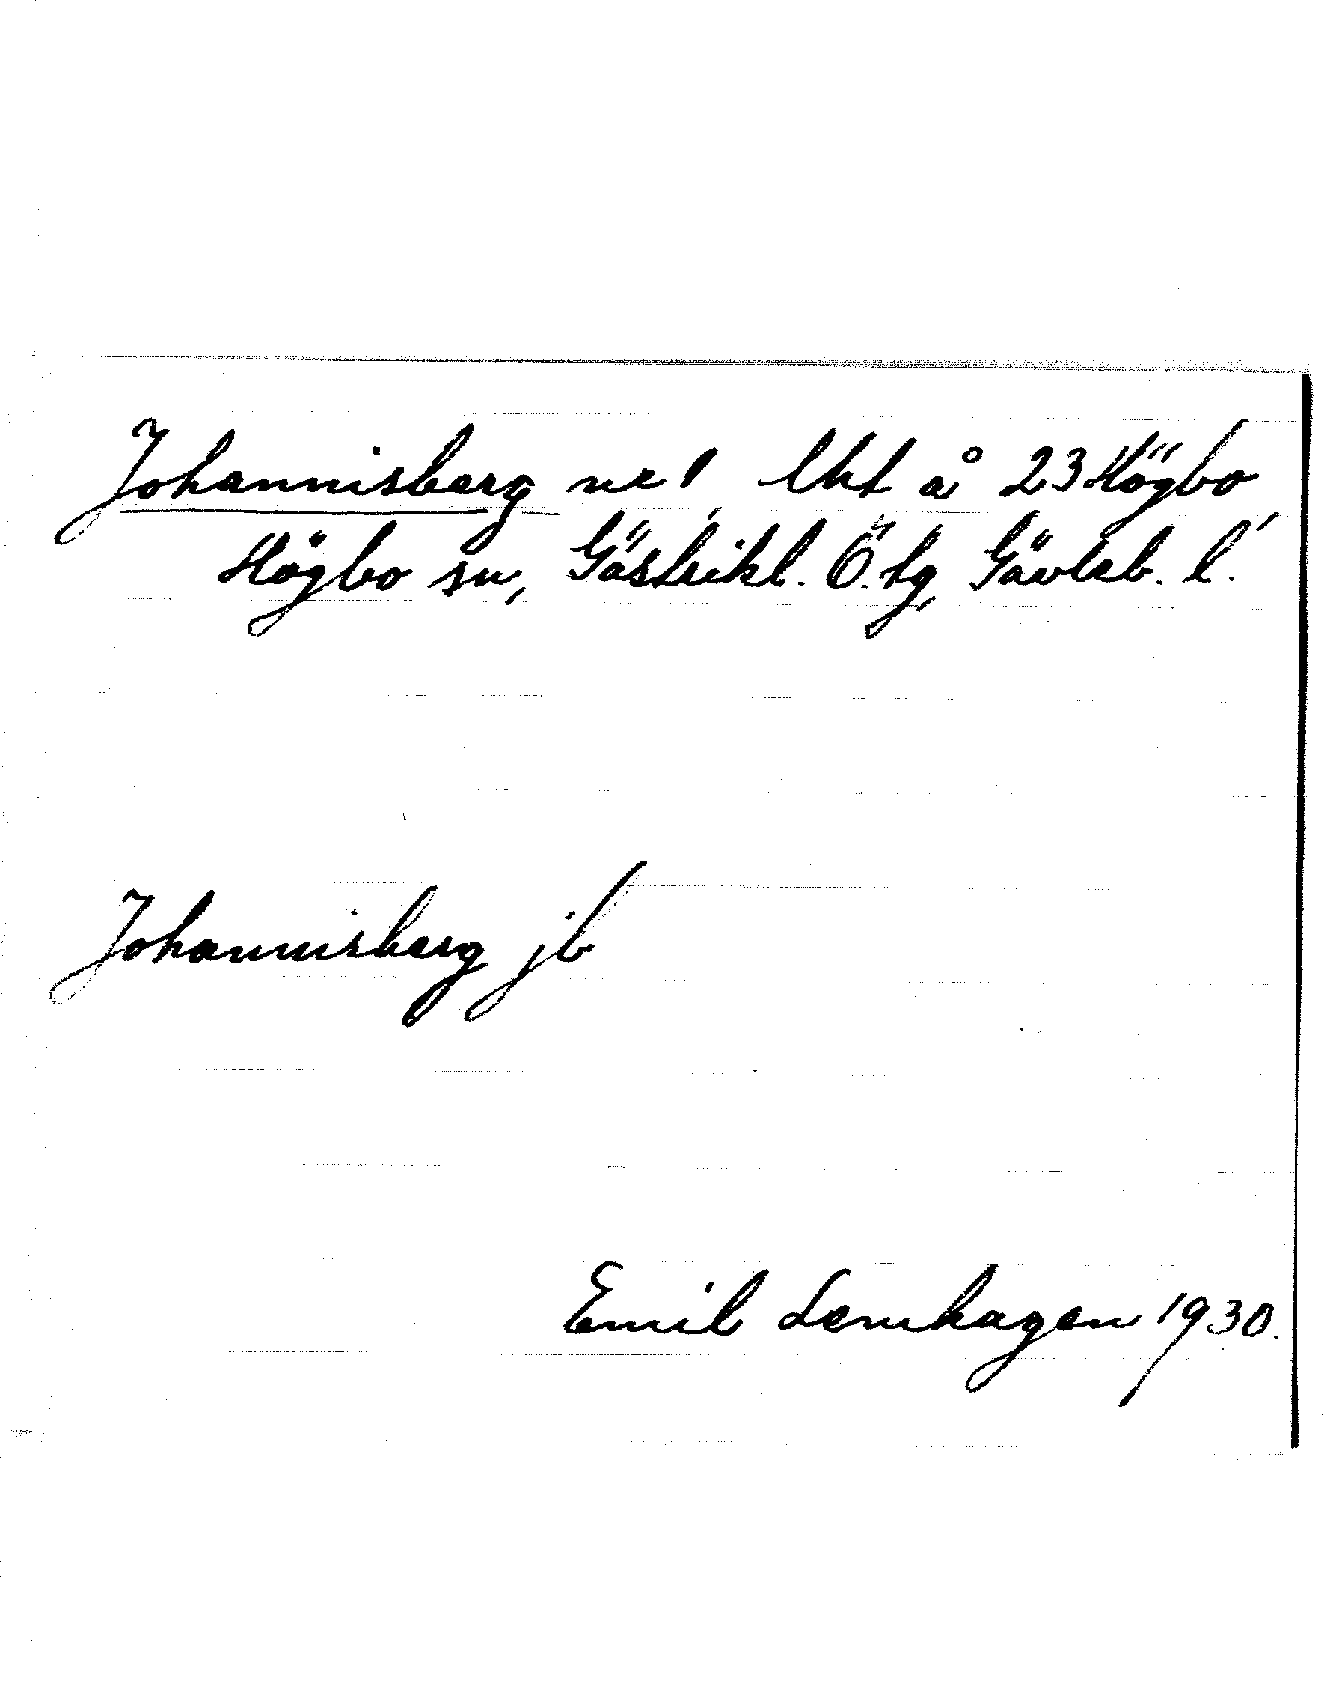 Johannisberg nr 1, lht å 23 Högbo,
Högbo sn, Gästrikl. Ö. tg, Gävleb. l.
Johannisberg jb
Emil Lemhagen 1930.